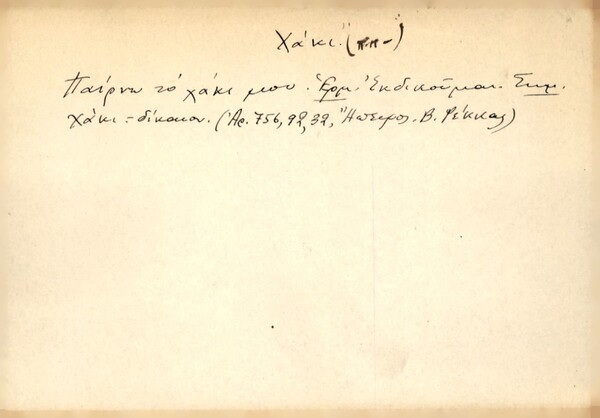 Χάκι (π.π-)
Παίρνω τό χάκι μου. Ἑρμ. Ἐκδικοῦμαι. Σημ.
χάκι = δίκαιον. (Ἀρ. 756, 92, 32, Ἤπειρος. Β. Ρέκκας)